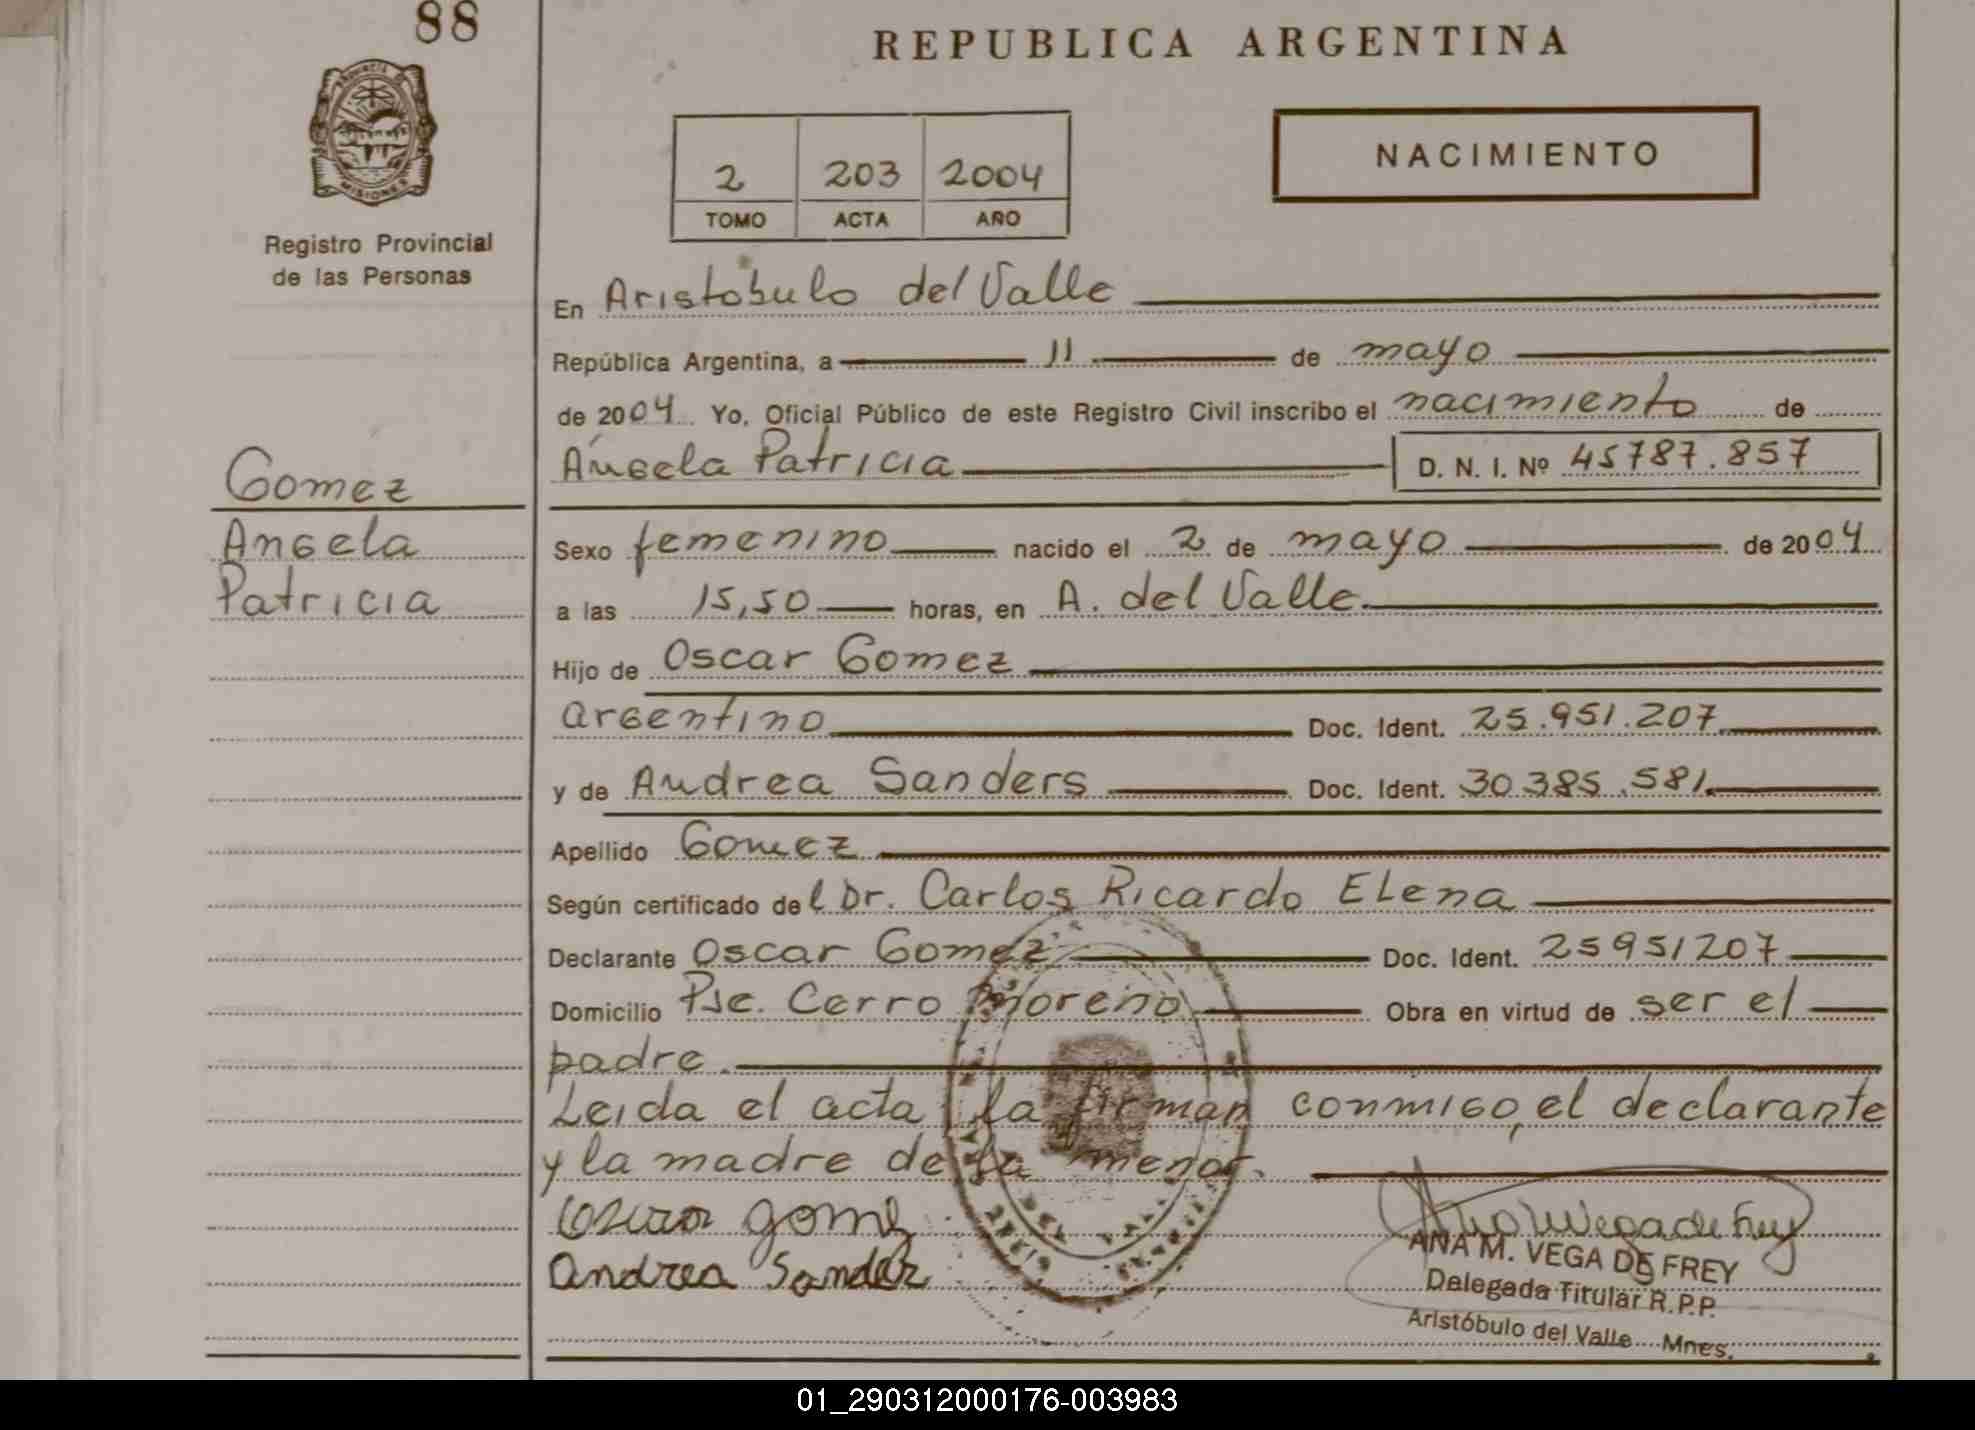 88
REPUBLICA ARGENTINA
PROVINCIA DE
MISIONES
Registro Provincial
de las Personas
2 203 2004
TOMO ACTA AÑO
NACIMIENTO
En Aristobulo del Valle
República Argentina, a 11 de mayo
de 2004. Yo, Oficial Público de este Registro Civil inscribo el nacimiento de
Ángela Patricia D. N. I. Nº 45787.857
Gomez
Angela
Patricia
Sexo femenino nacido el 2 de mayo de 2004
a las 15,50 horas, en A. del Valle
Hijo de Oscar Gomez
argentino Doc. Ident. 25.951.207
y de Andrea Sanders Doc. Ident. 30.385.581.
Apellido Gomez
Según certificado del Dr. Carlos Ricardo Elena
Declarante Oscar Gomez Doc. Ident. 25951207
Domicilio Pje. Cerro Moreno Obra en virtud de ser el
padre.
Leida el acta la firman conmigo, el declarante
y la madre de la menor.
Oscar gomez
Andrea Sander
ANA M. VEGA DE FREY
Delegada Titular R.P.P.
Aristóbulo del Valle Mnes.
01_290312000176-003983